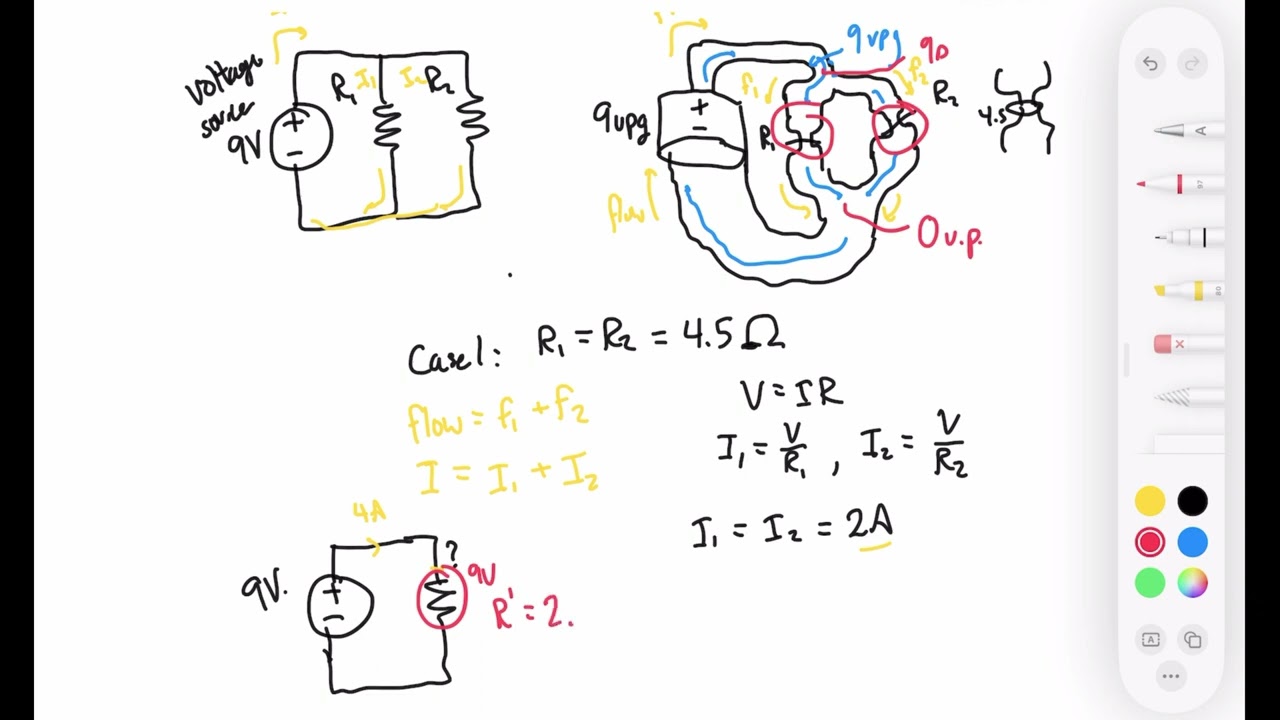 voltage
source
9V
R₁ I₁ I₂ R₂
+
−
9vpg
+
−
flow
f₁
f₂
9vpg
R₁
R₂
0 v.p.
4.5
Case 1: R₁ = R₂ = 4.5 Ω
flow = f₁ + f₂
I = I₁ + I₂
V = IR
I₁ = V/R₁ , I₂ = V/R₂
I₁ = I₂ = 2A
4A
9V.
+
−
?
9V
R' = 2.
A
97
80
A